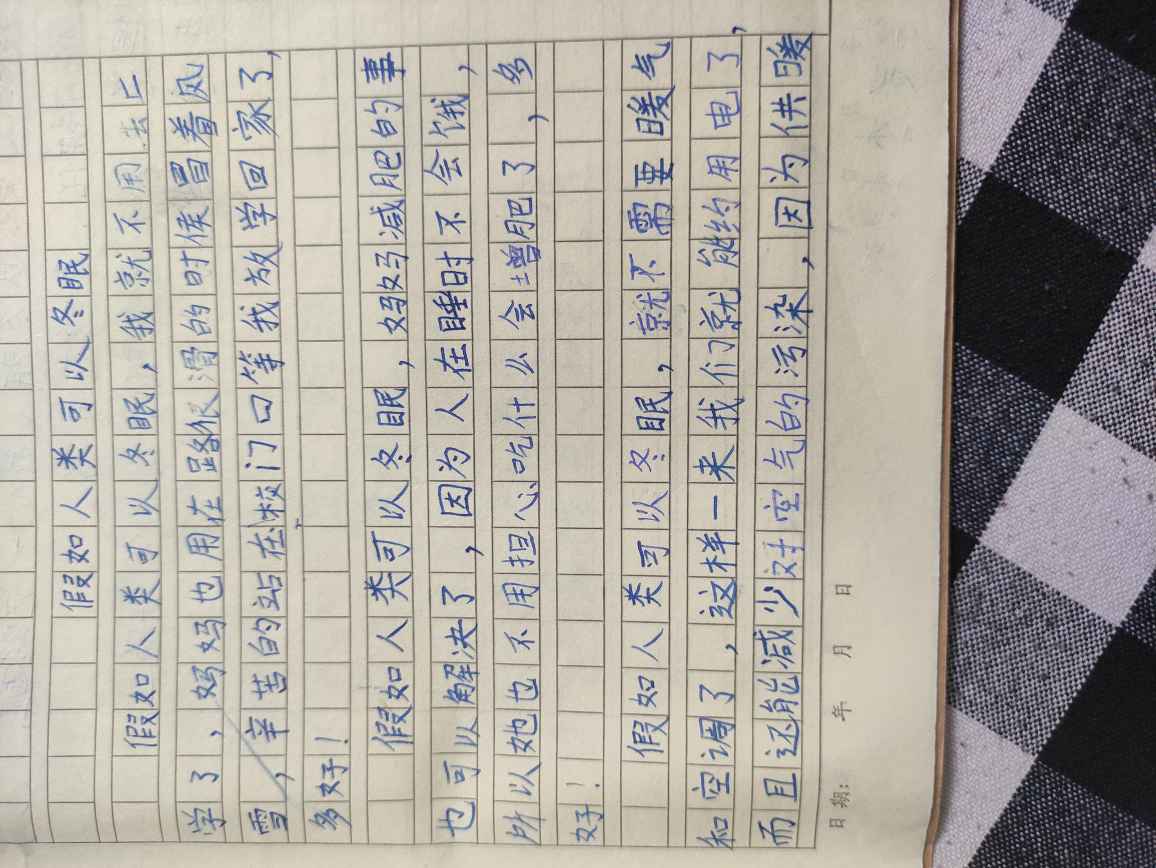 假如人类可以冬眠
假如人类可以冬眠，我就不用去上
学了，妈妈也用在路很滑的时侯冒着风
雪，辛苦的站在校门口等我放学回家了，
多好！
假如人类可以冬眠，妈妈减肥的事
也可以解决了，因为人在睡时不会饿，
所以她也不用担心吃什么会增肥了，多
好！
假如人类可以冬眠，就不需要暖气
和空调了，这样一来我们就能约用电了，
而且还能减少对空气的污染，因为供暖
日期： 年 月 日